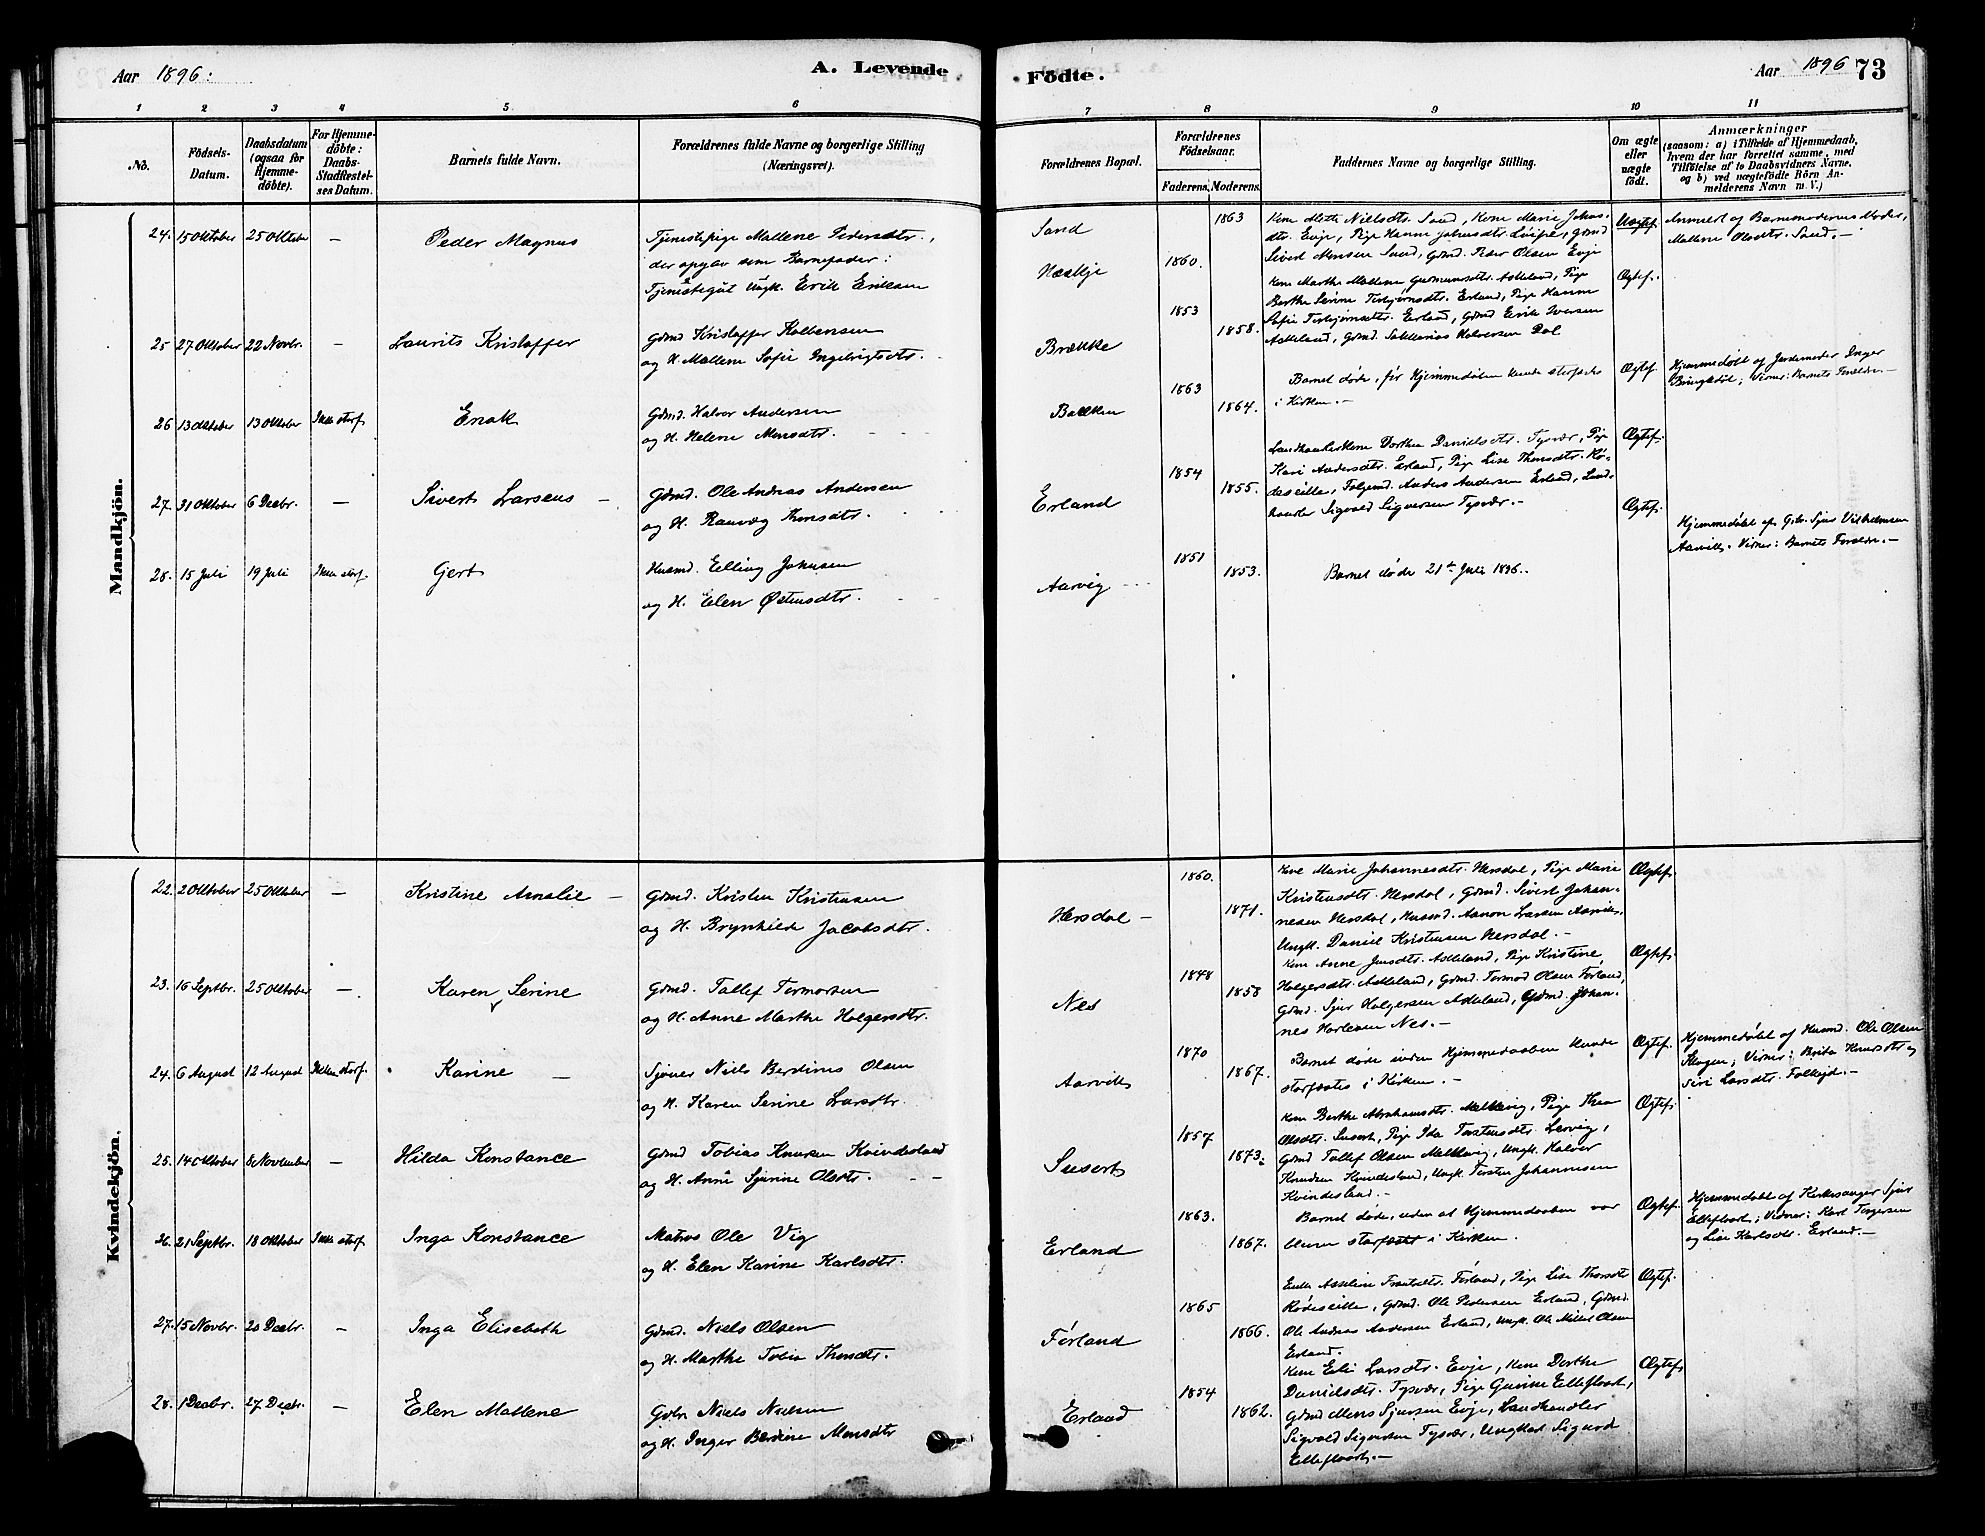 Aar 1896.
A. Levende
Födte.
Aar 1896
73
1 2 3 4 5 6 7 8 9 10 11
No.
Födsels-Datum.
Daabsdatum (ogsaa for Hjemmedöbte).
For Hjemmedöbte: Daabs-Stadfæstelses Datum.
Barnets fulde Navn.
Forældrenes fulde Navne og borgerlige Stilling
(Næringsvei).
Forældrenes Bopæl.
Forældrenes Födselsaar.
Faderens. Moderens.
Faddernes Navne og borgerlige Stilling.
Om ægte eller uægte födt.
Anmærkninger
(saasom: a) i Tilfælde af Hjemmedaab,
hvem der har forrettet samme, med
Tilföielse af to Daabsvidners Navne,
og b) ved uægtefödte Börn An-
melderens Navn m. V.)
Mandkjön.
24. 15 Oktober 25 Oktober — Peder Magnus
Tjenestepige Mallene Pedersdtr.,
der opgav som Barnefader:
Tjenestegut Ungk. Erik Eriksen
Sand
1863
1860.
Kone Mette Nielsdtr. Sand, Kone Marie Johns-
dtr. Evje, Pige Hanne Johnsdtr. , Gmd
Sivert Monsen Sand, Gmd. Peder Olsen Evje
Uægtef.
Anmeldt af Barnemoderens Moder,
Mallene Olsdtr. Sand. —
25 27 Oktober 22 Novbr. — Laurits Kristoffer
Gbmd Kristoffer Kolbensen
og H. Mallene Sofie Ingebrigtsdtr.
Brække
1853
1858.
Kone Marthe Mallene Gudmunsdtr. Askeland, Pige
Berthe Serine Torbjørnsdtr. Erland, Pige Hanne
Sofie Torbjørnsdtr. Erland, Gmd Eirik Iversen
Askeland, Gmd. Halvorsen Dal
Ægtef.
26 13 Oktober 13 Oktober Ikke stadf. Enok
Gbmd. Halvor Andersen
og H. Helene Monsdtr.
Bakken
1863
1864.
Barnet døde, før Hjemmedaaben kunde stadfæstes
i Kirken. —
Ægtef.
Hjemmedøbt af Jordemoder Inger
; Vidner: Barnets Forældre. —
27. 31 Oktober 6 Decbr. — Sivert Larsens —
Gbmd. Ole Andreas Andersen
og H. Ranveg Thorsdtr.
Erland
1854
1855.
Dorthea Danielsdtr. Tysvær, Pige
Kari Andersdtr. Erland, Pige Lise Thorsdtr. Rø-
deseille, Folgemd. Anders Andersen Erland, Land-
handler Sigvald Sigversen Tysvær. —
Ægtef.
28. 15 Juli 19 Juli Ikke stadf. Gjert
Husmd. Elling Johnsen
og H. Elen Østensdtr.
Aarvig
1851
1853.
Barnet døde 21de Juli 1896.
Ægtef.
Hjemmedøbt af Sjur Vilhelmsen
Aarvik. Vidner: Barnets Forældre. —
Kvindekjön.
22. 2 Oktober 25 Oktober — Kristine Amalie —
Gbmd. Kristen Kristensen
og H. Brynhilde Jacobsdtr.
Hersdal —
1860.
1871.
Kone Marie Johannesdtr. Hersdal, Pige Marie
Kristensdtr. Hersdal, Gbmd. Sivert Johan-
nesen Hersdal, Husmd. Aanon Larsen Aarvik,
Ungk. Daniel Kristensen Hersdal. —
Ægtef.
23. 16 Septbr. 25 Oktober — Karen Serine
Gbmd. Tallef Tormodsen
og H. Anne Marthe Holgersdtr.
Nes
1848
1858
Kone Anne Jensdtr. Askeland, Pige Kristine
Holgersdtr. Askeland, Gbmd. Tormod Olsen Førland,
Gbmd. Sjur Holgersen Askeland, Gbmd. Johan-
nes Nes. —
Ægtef.
24. 6 August 12 August Ikke stadf. Karine —
Sjømd Niels Berdines Olsen
og H. Karen Serine Larsdtr.
Aarvik
1870
1867.
Barnet døde inden Hjemmedaaben kunde
stadfæstes i Kirken. —
Ægtef.
Hjemmedøbt af Husmd. Ole Olsen
; Vidner: Brita Knudsdtr. og
Siri Larsdtr. —
25. 14 Oktober 8 November — Hilda Konstance
Gbmd Tobias Knutsen Kvindesland
og H. Anne Sjurine Olsdtr.
Susort
1857
1873.
Kone Berthe Abrahamsdtr. Melkevig, Pige Thea
Olsdtr. Susort, Pige Ida Torstensdtr. Lervig,
Gbmd Tallef Olsen Melkevig, Ungk. Halvor
Knudsen Kvindesland, Ungk. Torsten Johannesen
Kvindesland. —
Ægtef.
26. 21 Septbr. 18 Oktober Ikke stadf. Inga Konstance
Matros Ole Vig
og H. Elen Karine Karlsdtr.
Erland
1863.
1867.
Barnet døde, uden at Hjemmedaaben var
bleven stadfæstet i Kirken.
Ægtef.
Hjemmedøbt af Kirkesanger Sjur
Elleflaat; Vidner: Karl Torgersen
og Lise Karlsdtr. Erland. —
27. 15 Novbr. 20 Decbr. — Inga Elisabeth
Gbmd. Niels Olsen
og H. Marthe Tobia Thorsdtr.
Førland
1865
1866.
Enke Asseline . Førland, Pige Lise Thorsdtr
Rødeseille, Gbmd. Ole Pedersen Erland, Gbmd.
Ole Andreas Andersen Erland, Ungk. Ole Mikkel Olsen
Erland.
Ægtef.
28. 1 Decbr. 27 Decbr. — Elen Mallene
Gbbr Niels Nielsen
og H. Inger Berdine Monsdtr
Erland
1854
1862.
Kone Eli Larsdtr. Evje, Kone Dorthe
Danielsdtr. Tysvær, Pige Gurine Elleflaat,
Gbmd Mons Sjursen Evje, Landhandler
Sigvald Sigversen Tysvær, Ungkarl Sigurd
Elleflaat. —
Ægtef.